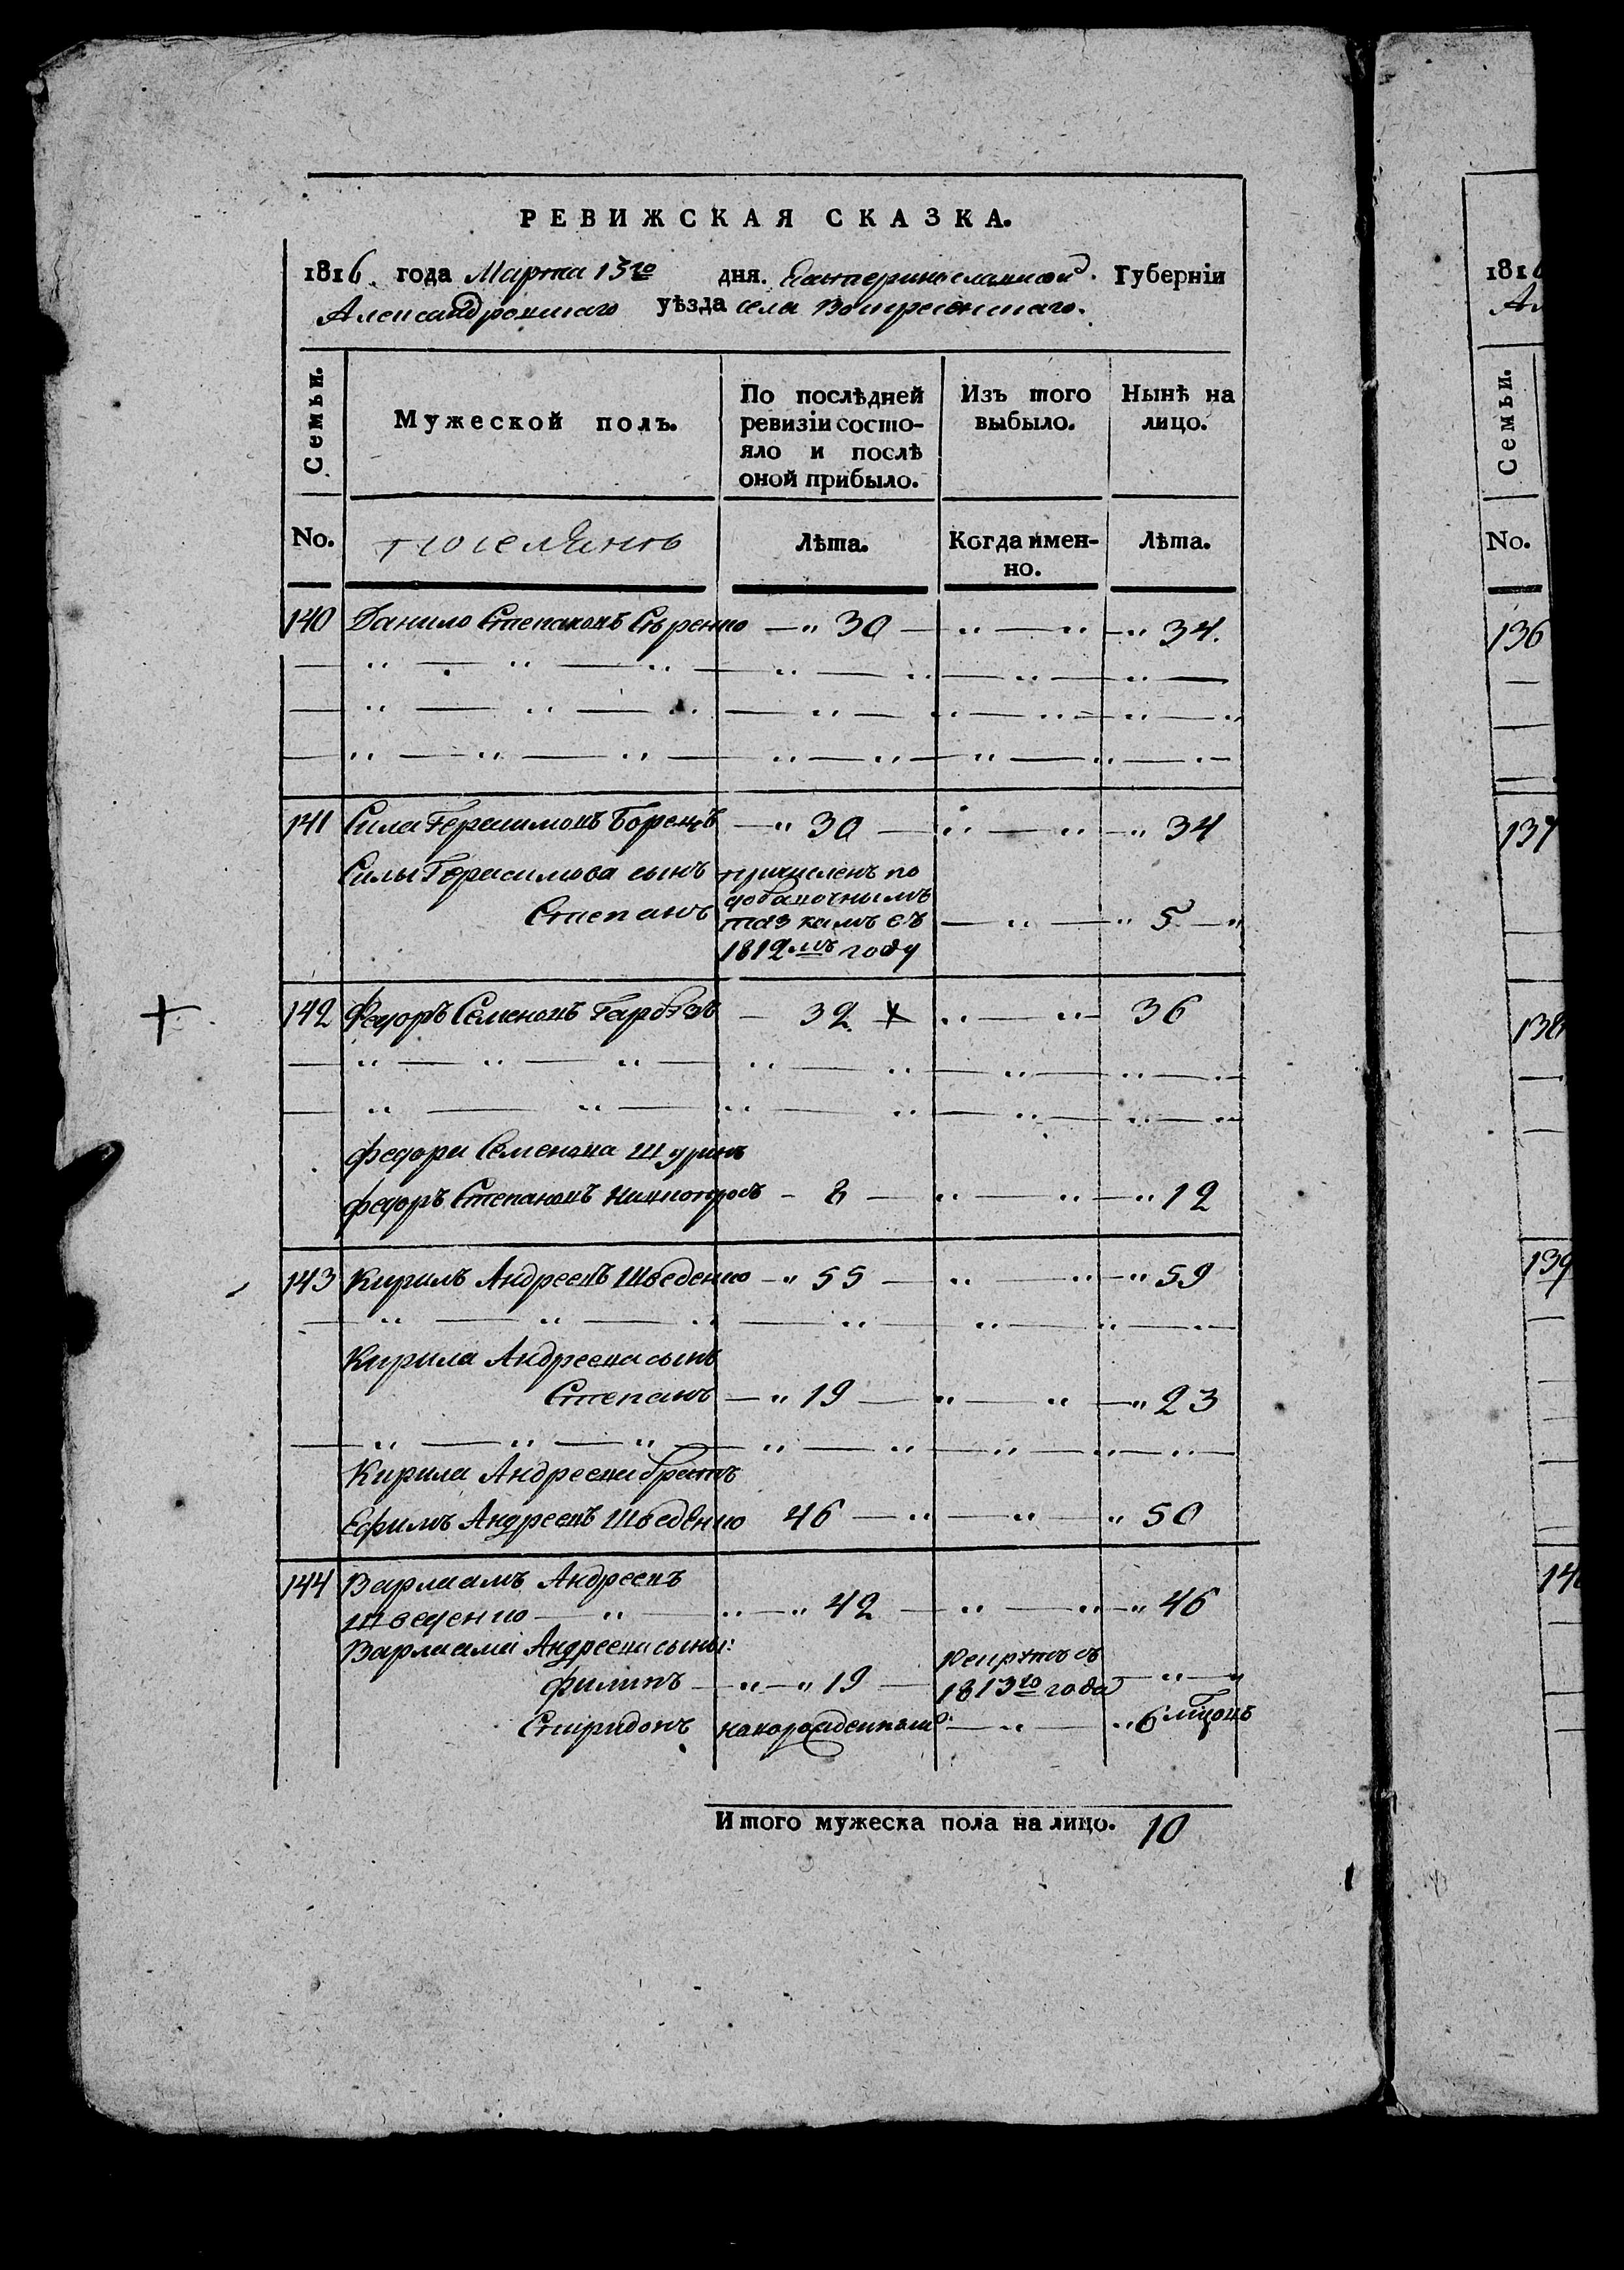 РЕВИЖСКАЯ СКАЗКА.
1816. года Марта 15го дня. Екатеринославской. Губерніи
Александровскаго уѣзда села Воскресенскаго.
Семьи.
Мужеской полъ.
По послѣдней
ревизіи состо-
яло и послѣ
оной прибыло.
Изъ того
выбыло.
Нынѣ на
лицо.
No. поселянъ Лѣта. Когда имен-
но. Лѣта.
140 Данило Степановъ Сѣренко — „ 30 — „ — „ — „ 34.
141 Сила Герасимовъ Борецъ — „ 30 — „ — „ — „ 34
Силы Герасимова сынъ причисленъ по
добавочнымъ
Степанъ сказкамъ въ — „ — „ 5 — „
1812мъ году
142 Федоръ Семеновъ — 32 „ — „ — 36
Федора Семенова Шуринъ
Федоръ Степановъ — 8 — „ — „ — „ 12
143 Кирилъ Андреевъ Шведенко — „ 55 — „ — „ — „ 59
Кирила Андреева сынъ
Степанъ — „ 19 — „ — „ — „ 23
Кирила Андреева братъ
Ефимъ Андреевъ Шведенко 46 — „ — „ — „ 50
144 Варлаамъ Андреевъ
Шведенко — „ — „ — „ 42 — „ — „ — „ 46
Варлаама Андреева сыны:
Филипъ — „ — „ 19 — Рекрутъ съ
1813го года — „ — „
Спиридонъ новорожденной — „ — „ 6 мцовъ
Итого мужеска пола на лицо. 10
1816
Ал
Семьи.
No.
136
137
138
139
14